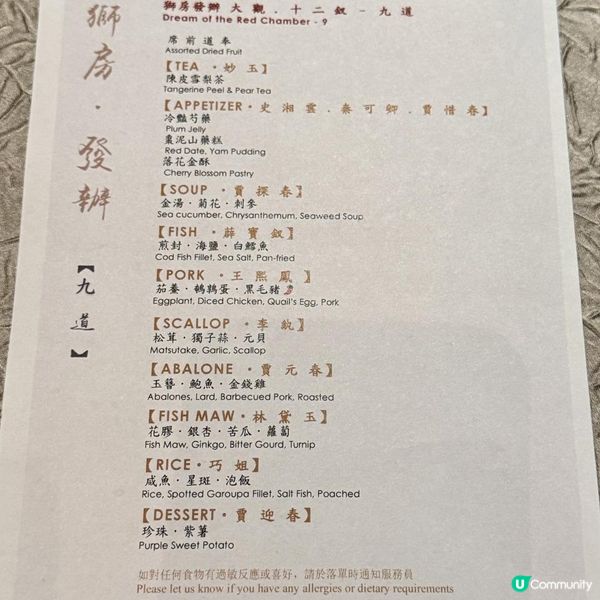 獅房・發辦
【九道】
獅房發辦 大觀．十二釵 - 九道
Dream of the Red Chamber - 9
席前道奉
Assorted Dried Fruit
【TEA・妙玉】
陳皮雪梨茶
Tangerine Peel & Pear Tea
【APPETIZER・史湘雲．秦可卿．賈惜春】
冷豔芍藥
Plum Jelly
棗泥山藥糕
Red Date, Yam Pudding
落花金酥
Cherry Blossom Pastry
【SOUP・賈探春】
金湯・菊花・刺參
Sea cucumber, Chrysanthemum, Seaweed Soup
【FISH・薛寶釵】
煎封・海鹽・白鱈魚
Cod Fish Fillet, Sea Salt, Pan-fried
【PORK・王熙鳳】
茄養・鵪鶉蛋・黑毛豬
Eggplant, Diced Chicken, Quail's Egg, Pork
【SCALLOP・李紈】
松茸・獨子蒜・元貝
Matsutake, Garlic, Scallop
【ABALONE・賈元春】
玉簪・鮑魚・金錢雞
Abalones, Lard, Barbecued Pork, Roasted
【FISH MAW・林黛玉】
花膠・銀杏・苦瓜・蘿蔔
Fish Maw, Ginkgo, Bitter Gourd, Turnip
【RICE・巧姐】
咸魚・星斑・泡飯
Rice, Spotted Garoupa Fillet, Salt Fish, Poached
【DESSERT・賈迎春】
珍珠・紫薯
Purple Sweet Potato
如對任何食物有過敏反應或喜好，請於落單時通知服務員
Please let us know if you have any allergies or dietary requirements
U Community